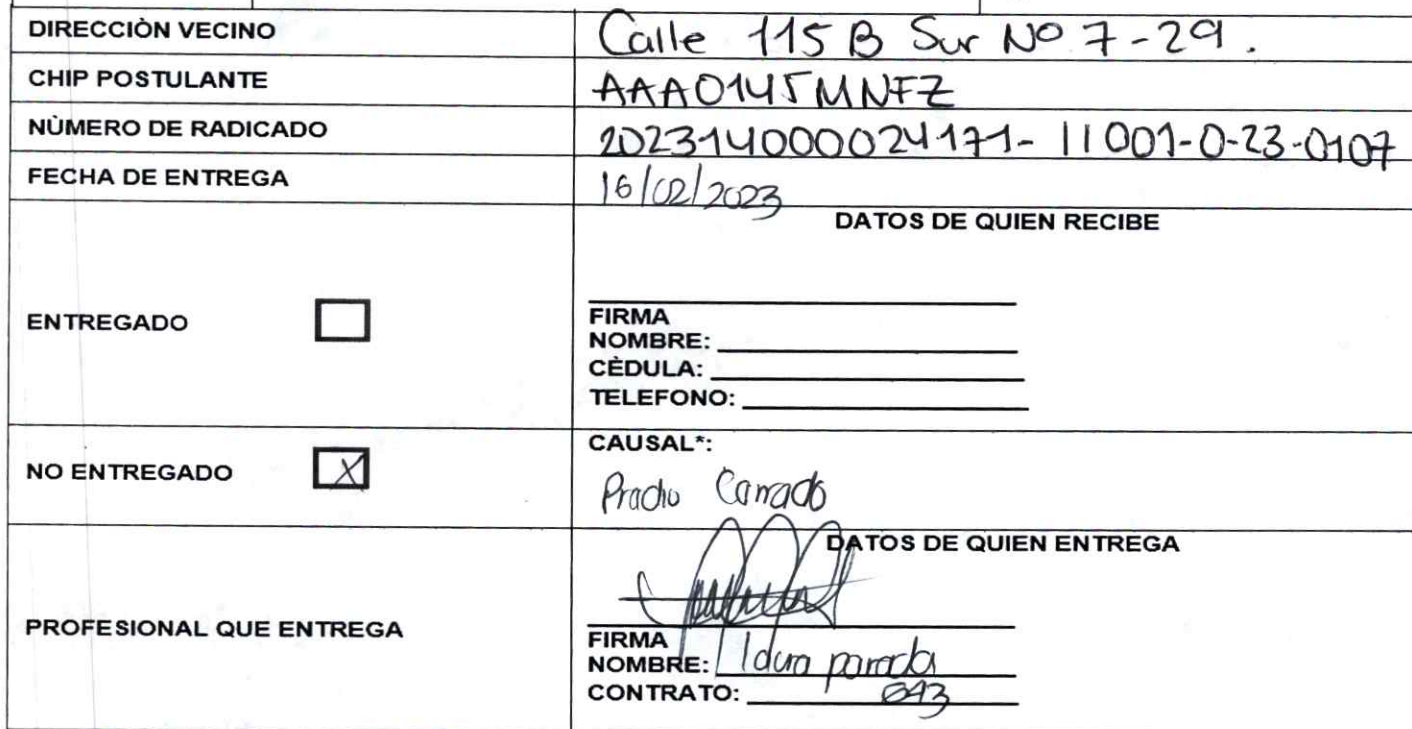 DIRECCIÒN VECINO Calle 115 B Sur Nº 7-29.
CHIP POSTULANTE AAA0145MNFZ
NÙMERO DE RADICADO 202314000024171- 11001-0-23-0107
FECHA DE ENTREGA 16/02/2023
DATOS DE QUIEN RECIBE
ENTREGADO
FIRMA
NOMBRE:
CÈDULA:
TELEFONO:
NO ENTREGADO X
CAUSAL*:
Predio Cerrado
DATOS DE QUIEN ENTREGA
PROFESIONAL QUE ENTREGA
FIRMA
NOMBRE: parada
CONTRATO: 043